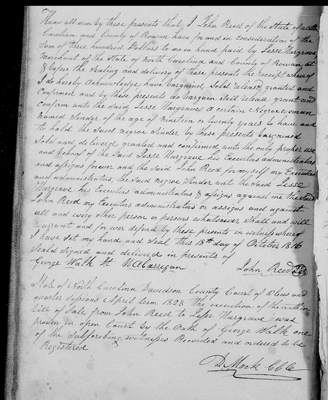 Know all men by these presents that I John Reed of the State of North
Carolina and County of Rowan have for and in consideration of the
Sum of three hundred dollars to me in hand paid by Jesse Hargrave
Merchant of the State of North Carolina and County of Rowan, at
& before the sealing and delivery of these presents the receipt whereof
I do hereby acknowledge have bargained, Sold, released, granted and
Confirmed and by these presents do bargain Sell release grant and
confirm unto the said Jesse Hargrave a certain negro woman
named Dinder of the age of nineteen or twenty years to have and
to hold the said negro Dinder by these presents bargained
Sold and delivered, granted and confirmed unto the only proper use
and behoof of the said Jesse Hargrave his Executors administrators
and assigns forever and the said John Reed for myself my Executors
and administrators, the said negro Dinder unto the said Jesse
Hargrave his Executors administrators & assigns against me the said
John Reed my Executors administrators or assigns and against
all and every other person or persons whatsoever Shall and will
Warrant and for ever defend by these presents in witness whereof
I have set my hand and Seal this 18th day of October 1816
Seald signed and delivered in presents of
George Walk H. McCarrigan John Reed
State of North Carolina Davidson County Court of Pleas and
quarter Sessions April term 1823 The execution of the within
bill of Sale from John Reed to Jesse Hargrave was
proven in open Court by the Oath of George Walk one
of the Subscribing witnesses Recorded and ordered to be
Registered
D Mock CCC